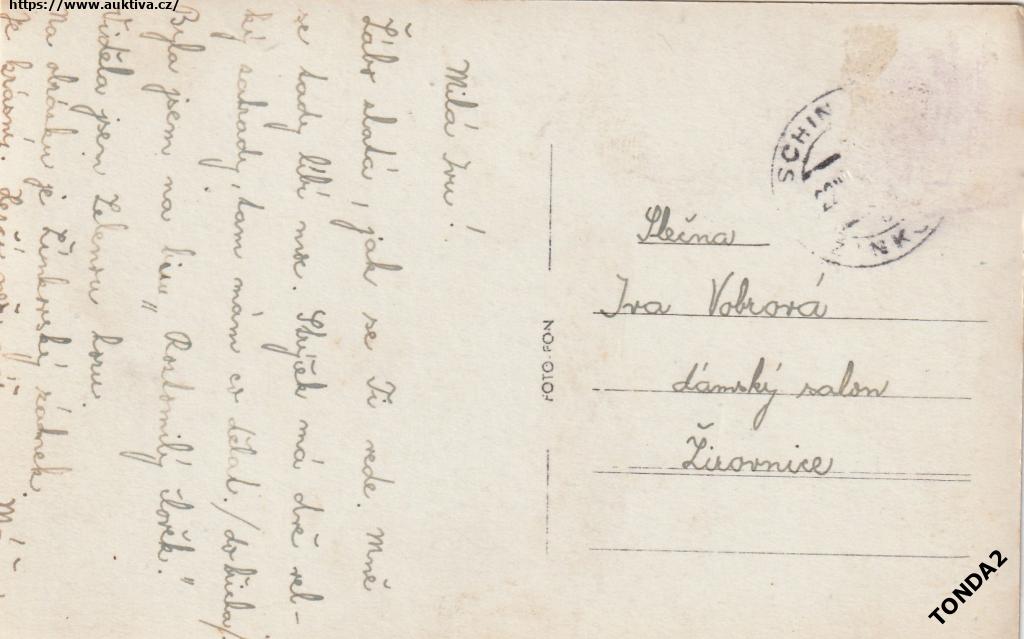 https://www.auktiva.cz/
Milá Ivu!
Žábo zlatá, jak se Ti vede. Mně
se tady líbí moc. Strýček má dvě vel-
ký zahrady, tam mám co dělat.
Byla jsem na biu „Roztomilý člověk."
Viděla jsem Zelenou horu.
Na obrázku je Žinkovský zámek.
Je krásný.
FOTO-FON
SCHIN
ŽINKO
Slečna
Iva Vobrová
dámský salon
Žirovnice
TONDA2